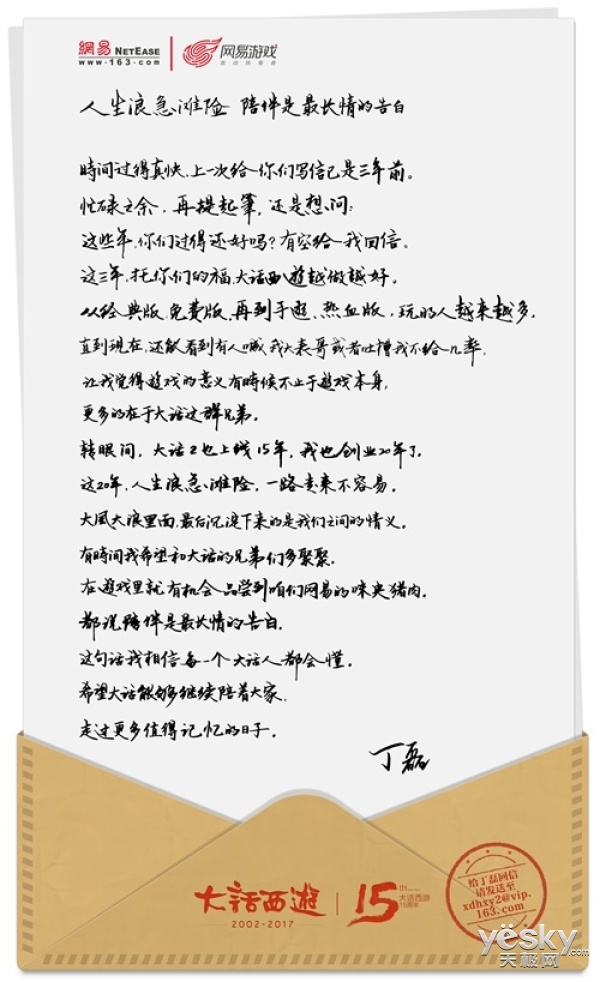 網易 NETEASE 网易游戏
www.163.com 游戏热爱者
人生浪急滩险 陪伴是最长情的告白
時间过得真快,上一次给你们写信已是三年前。
忙碌之余,再提起筆,还是想问:
这些年,你们过得还好吗?有空给我回信。
这三年,托你们的福,大话西遊越做越好。
从经典版、免费版、再到手遊、热血版,玩的人越来越多。
直到现在,还能看到有人喊我大表哥或者吐槽我不给几率,
让我觉得遊戏的意义有時候不止于遊戏本身,
更多的在于大话这群兄弟。
转眼间,大话2也上线15年,我也创业20年了。
这20年,人生浪急滩险,一路走来不容易。
大風大浪里面,最后沉淀下来的是我们之间的情义。
有時间我希望和大话的兄弟们多聚聚。
在遊戏里就有机会品尝到咱们网易的味央猪肉。
都说陪伴是最长情的告白,
这句话我相信每一个大话人都会懂。
希望大话能够继续陪着大家,
走过更多值得记忆的日子。
丁磊
大话西遊 2002-2017
15TH 大话西游 15周年
给丁磊回信
请发送至
xdhxy2@vip.
163.com
yësky.com
天极网